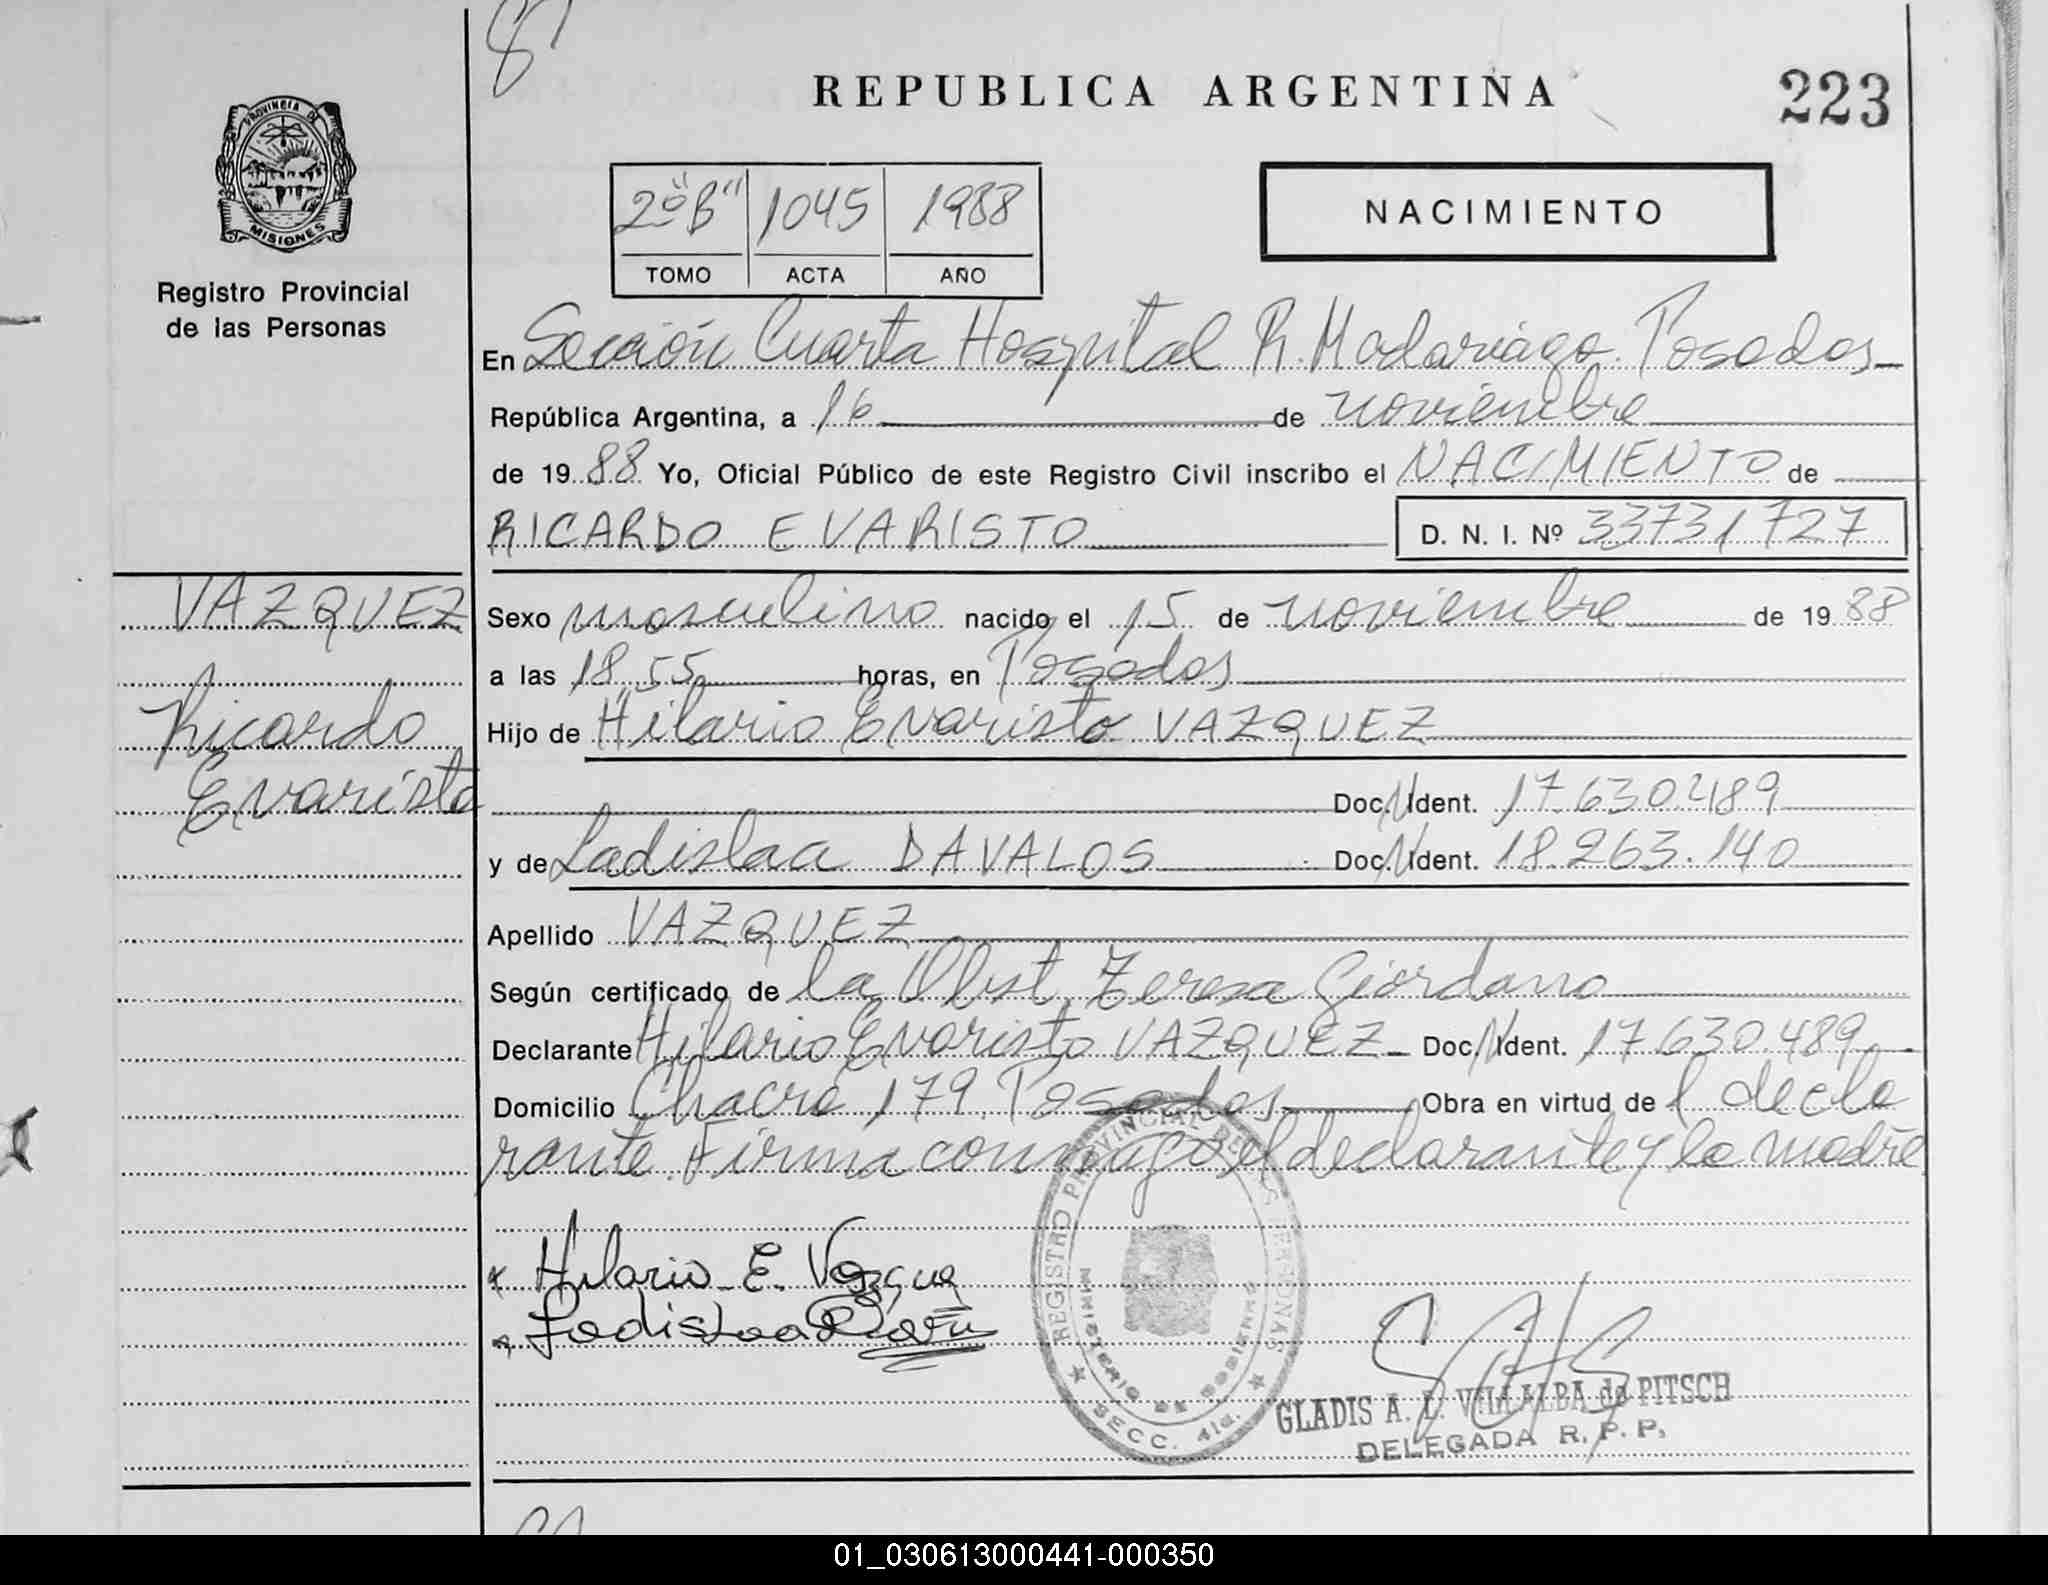 REPUBLICA ARGENTINA
223
PROVINCIA DE
MISIONES
Registro Provincial
de las Personas
2º "B" 1045 1988
TOMO ACTA AÑO
NACIMIENTO
En Sección Cuarta Hospital R. Madariaga. Posadas
República Argentina, a 16 de noviembre
de 1988 Yo, Oficial Público de este Registro Civil inscribo el NACIMIENTO de
RICARDO EVARISTO D. N. I. Nº 33731727
VAZQUEZ
Ricardo
Evaristo
Sexo masculino nacido el 15 de noviembre de 1988
a las 18.55 horas, en Posadas
Hijo de Hilario Evaristo VAZQUEZ
Doc. N. Ident. 17.630.489
y de Ladislaa DAVALOS Doc. N. Ident. 18.263.140
Apellido VAZQUEZ
Según certificado de la Obst. Teresa Giordano
Declarante Hilario Evaristo VAZQUEZ Doc. N. Ident. 17.630.489
Domicilio Chacra 179. Posadas Obra en virtud de l decla
rante. Firma conmigo el declarante y la madre
Hilario E. Vazque
Ladislaa
REGISTRO PROVINCIAL DE LAS PERSONAS
MINISTERIO DE GOBIERNO
SECC. 4ta.
GLADIS A. L. VILLALBA de PITSCH
DELEGADA R. P. P.
01_030613000441-000350